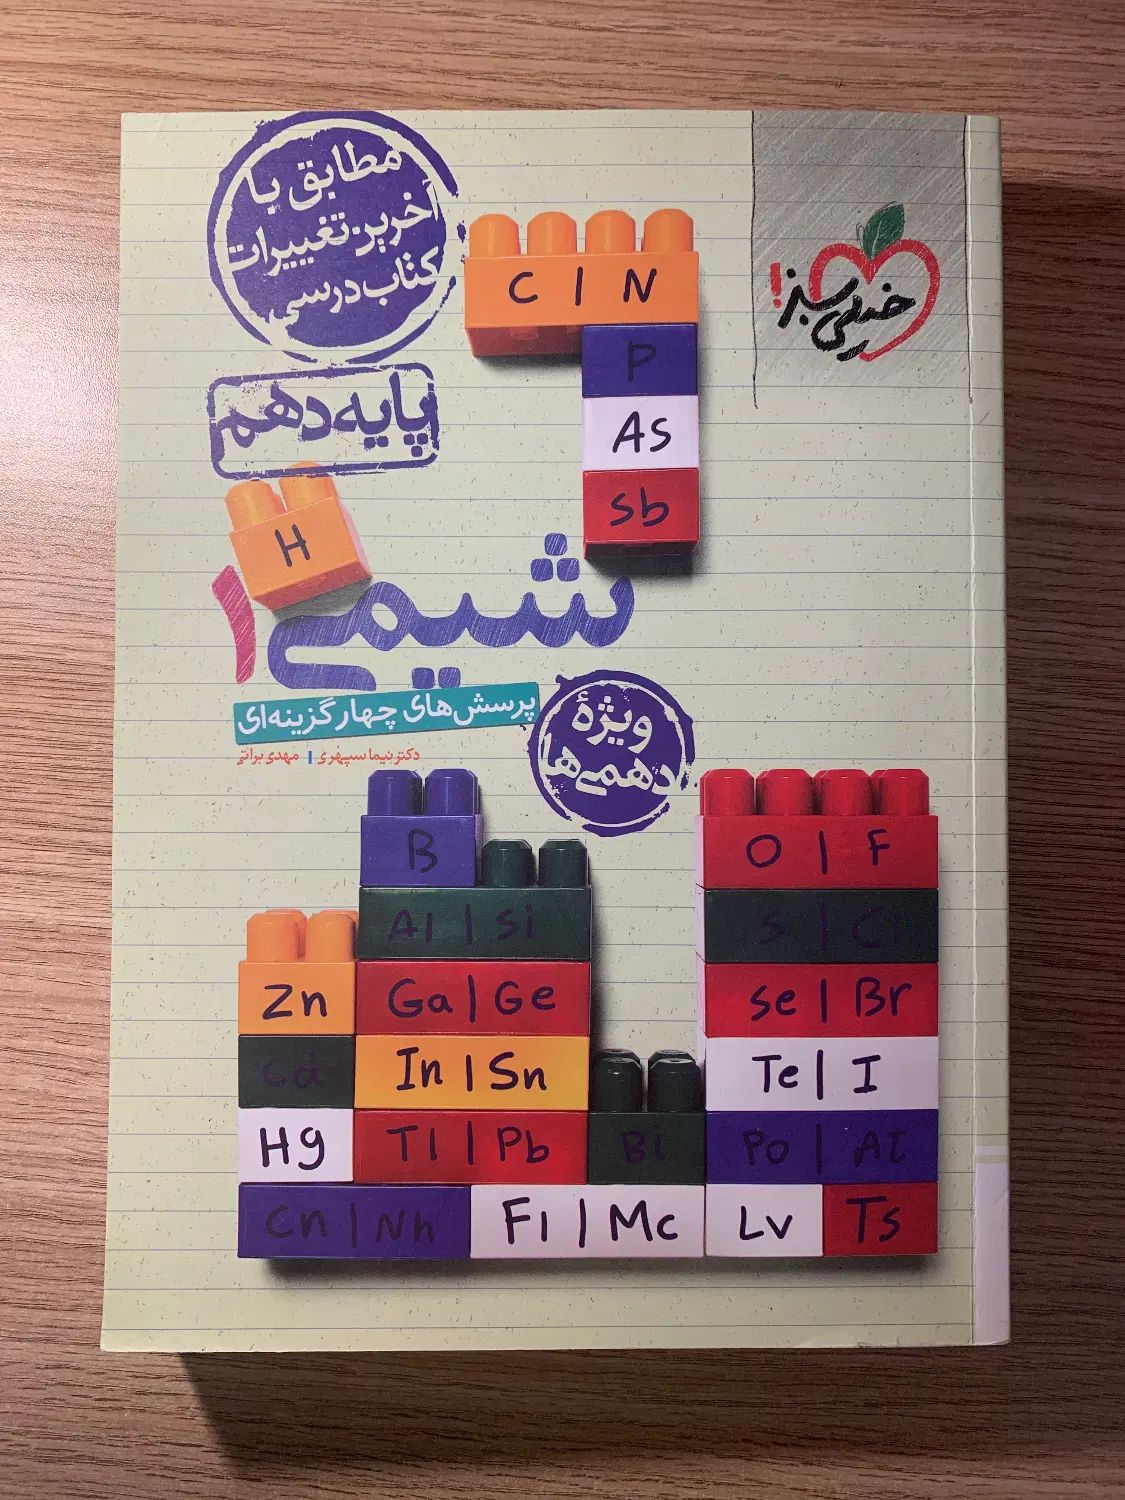 مطابق با
آخرین تغییرات
کتاب درسی
خیلی سبز!
پایه دهم
C | N
P
As
Sb
H
شیمی ۱
پرسش‌های چهارگزینه‌ای
دکتر نیما سپهری | مهدی براتی
ویژهٔ
دهمی‌ها
B
O | F
Al | Si
S | Cl
Zn
Ga | Ge
Se | Br
Cd
In | Sn
Te | I
Hg
Tl | Pb
Bi
Po | At
Cn | Nh
Fl | Mc
Lv
Ts